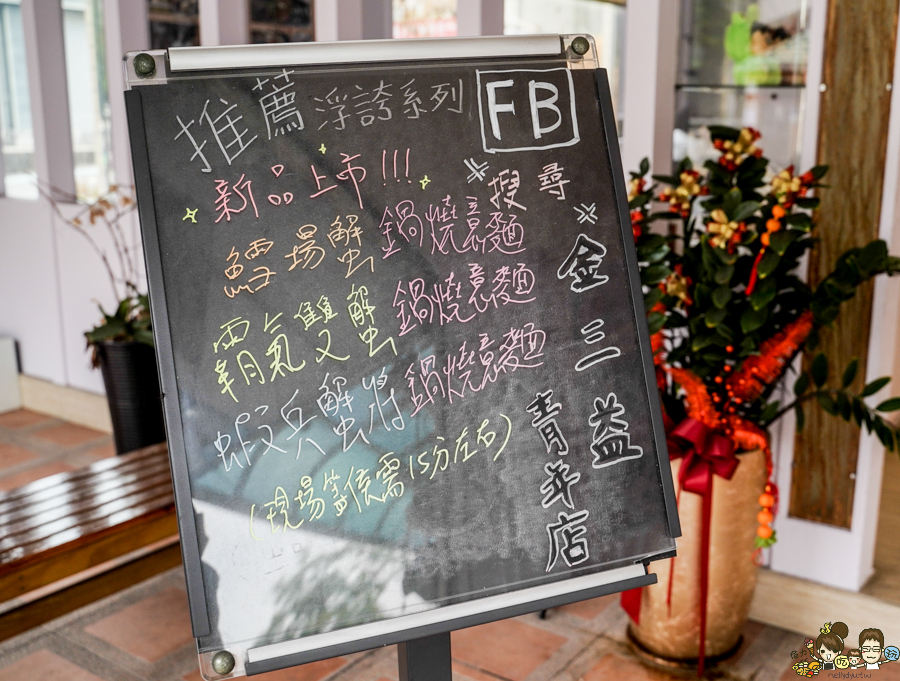 推薦 浮誇系列
新品上市!!!
鱷場蟹 鍋燒意麵
霸氣雙蟹 鍋燒意麵
蝦兵蟹將 鍋燒意麵
(現場等候需15分左右)
FB
搜尋
金三益
青年店